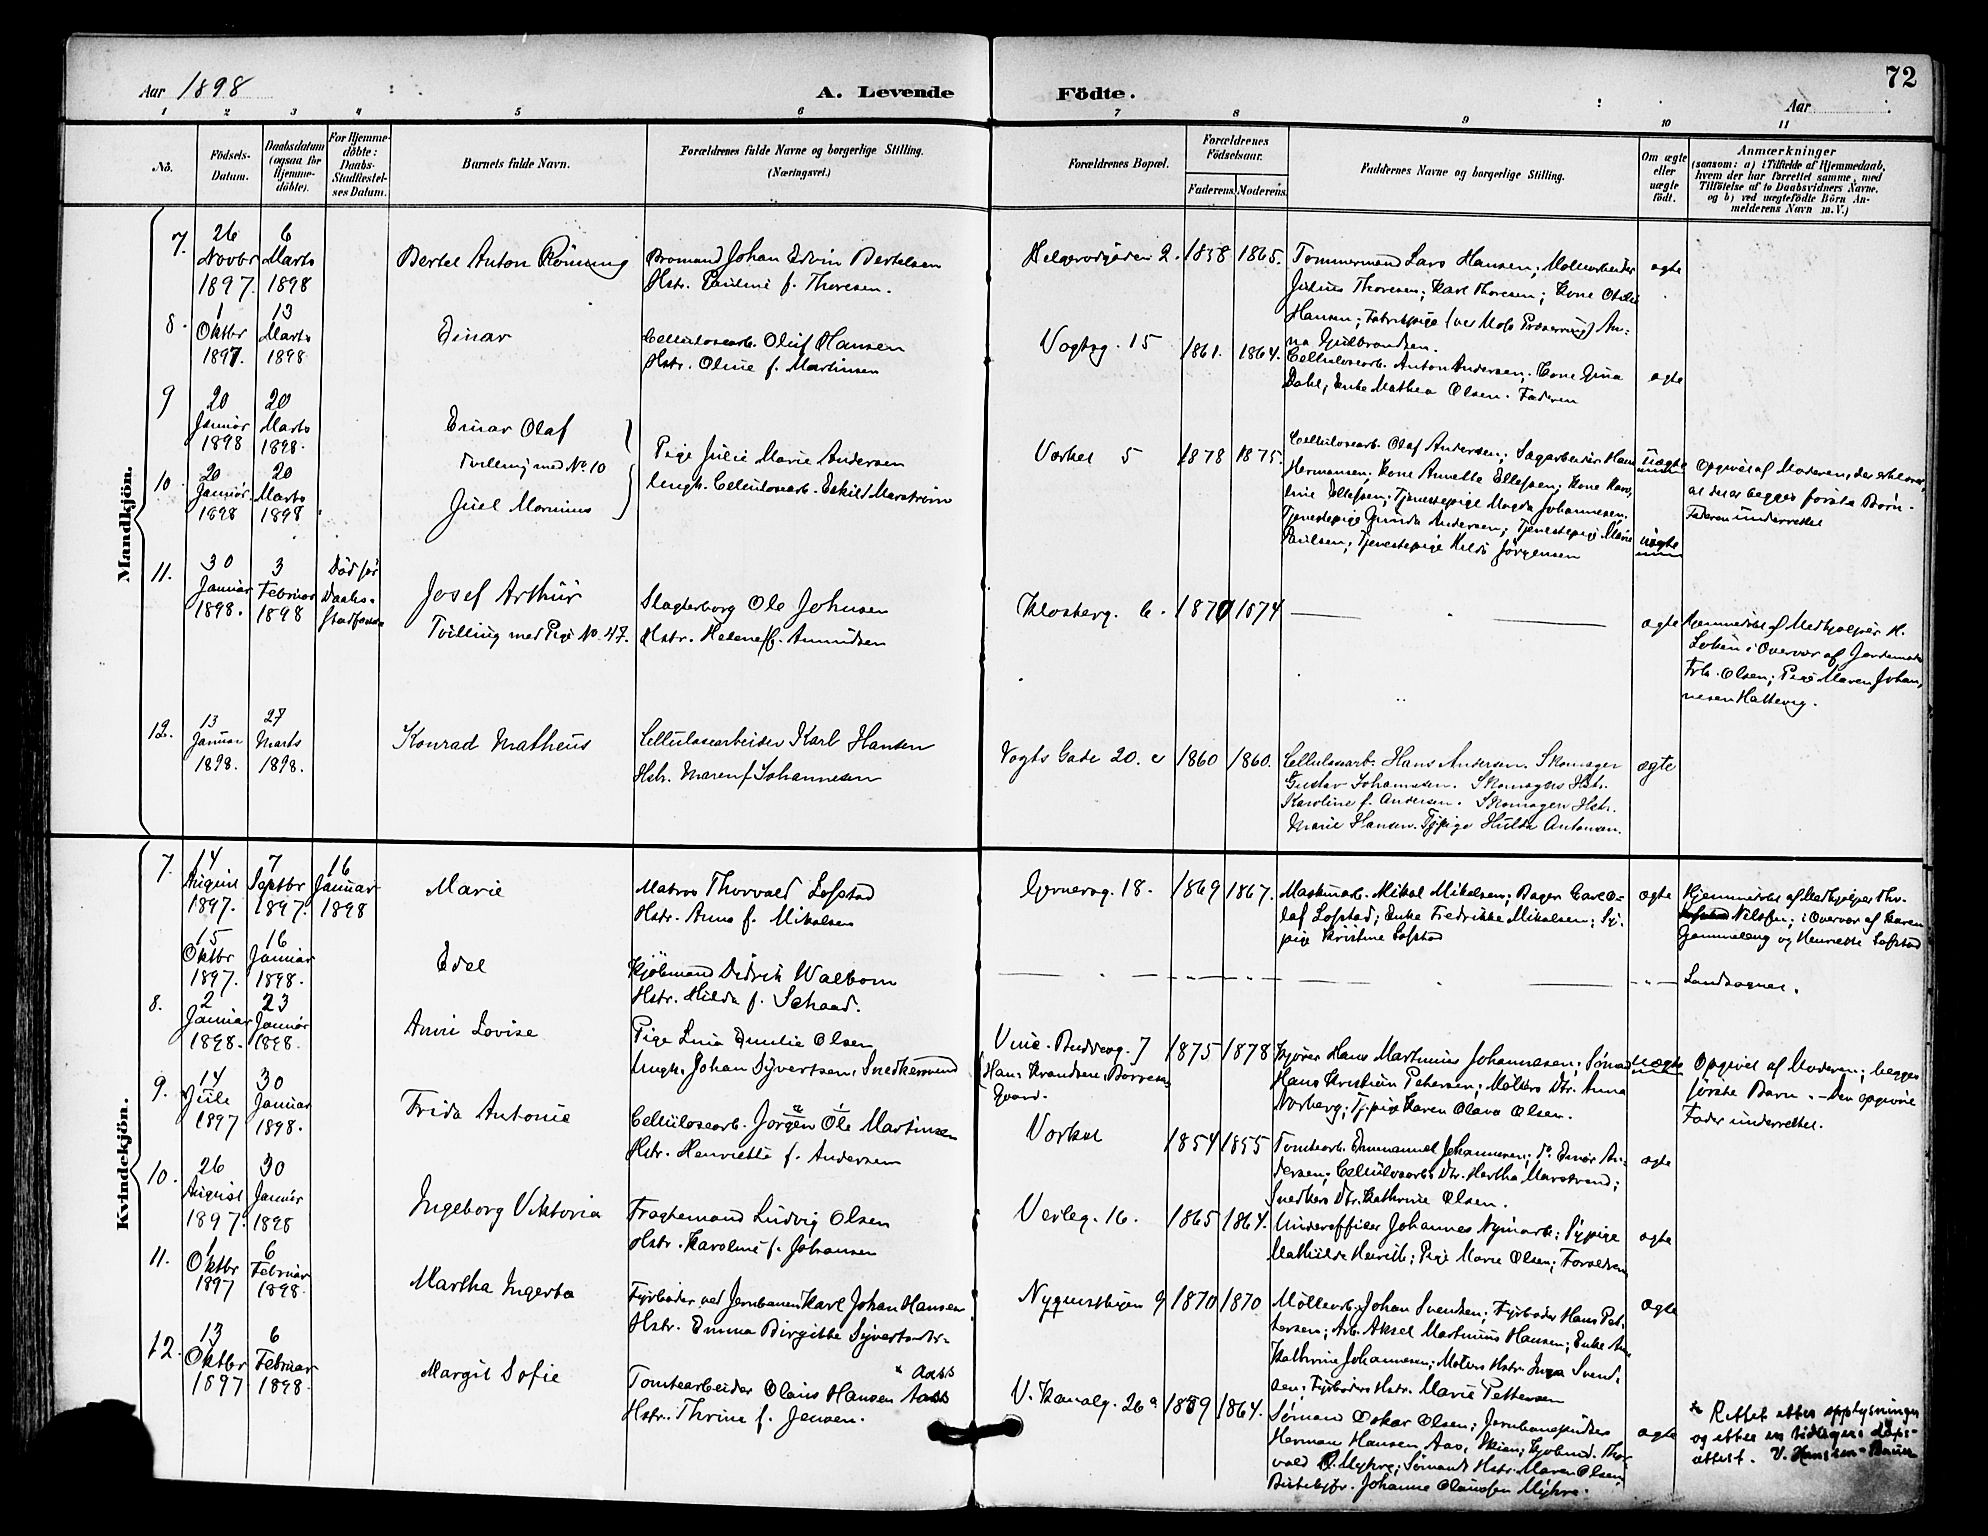 72
Aar 1898
A. Levende Födte.
Aar
1 2 3 4 5 6 7 8 9 10 11
No.
Födsels-Datum.
Daabsdatum (ogsaa for Hjemmedöbte).
For Hjemmedöbte: Daabs-Stadfæstelses Datum.
Barnets fulde Navn.
Forældrenes fulde Navne og borgerlige Stilling.
(Næringsvei.)
Forældrenes Bopæl.
Forældrenes Födselsaar.
Faderens. Moderens.
Faddernes Navne og borgerlige Stilling.
Om ægte eller uægte födt.
Anmærkninger
(saasom: a) i Tilfælde af Hjemmedaab,
hvem der har forrettet samme, med
Tilföielse af to Daabsvidners Navne,
og b) ved uægtefödte Börn An-
melderens Navn m.V.)
Mandkjön.
7. 26 Novbr 1897. 6 Marts 1898
Bertel Anton Rönning
Bromand Johan Edvin Bertelsen
Hstr. Pauline f. Thoresen.
2. 1838 1865.
Tømmermand Lars Hansen; Møllearbeider
Julius Thoresen; Karl Thoresen; Kone
Hansen; Fabrikpige
na Gulbrandsen.
ægte
8. 1 Oktbr 1897. 13 Marts 1898
Einar
Cellulosearb. Oluf Hansen
Hstr. Oline f. Martinsen
Vogtsg. 15 1861. 1864.
Cellulosearb. Anton Andersen; Kone Gina
Dahl; Enke Mathea Olsen. Faderen
ægte
9 20 Januar 1898 20 Marts 1898.
Einar Olaf
Tvilling med No. 10
10. 20 Januar 1898 20 Marts 1898
Juel Marinius
Pige Julie Marie Andersen
Ungk. Cellulosearb. Eskild Marstrøm
Vorkel 5 1878 1875.
Cellulosearb. Olaf Andersen; Sagarbeider Hans
Hermansen; Kone Annette Ellefsen; Kone
Ellefsen; Tjenestepige Magda Johannesen;
Tjenestepige Gunda Andersen; Tjenestepige Marie
Paulsen; Tjenestepige Hilda Jörgensen
uægte
uægte
Opgivet af Moderen, der erklærer,
at det er begges første Børn.
Faderen underrettet
11. 30 Januar 1898. 3 Februar 1898
Död før Daabs-
Josef Arthur
Tvilling med Pige No. 47.
Slagterborg Ole Johnsen
Hstr. Helene f. Amundsen
Klosterg. 6. 1870 1874
ægte
Hjemmedöbt af Medhjælper K.
i Overvær af Jordemoder
Frk. Olsen; Pige Maren Johan-
nesen Hattevig.
12. 13 Januar 1898. 27 Marts 1898.
Konrad Matheus
Cellulosearbeider Karl Hansen
Hstr. Maren f. Johannesen
Vogts Gade 20. c 1860 1860.
Cellulosearb. Hans Andersen. Skomager
Gustav Johannesen. Skomagers Hstr.
Karoline f. Andersen. Skomagers Hstr.
Marie Hansen. Tjpige Hulda Antonsen.
ægte
Kvindekjön.
7. 14 August 1897. 7 Septbr 1897. 16 Januar 1898
Marie
Matros Thorvald Lofstad
Hstr. Anna f. Mikalsen
18. 1869 1867.
Maskinarb. Mikal Mikalsen; Bager Carl O-
laf Lofstad; Enke Fredrikke Mikalsen; Sy-
pige Kristine Lofstad
ægte
Hjemmedöbt af Medhjælper Thv.
Nilssen; i Overvær af Karen
og Henriette Lofstad
15 Oktbr 1897. 16 Januar 1898.
Edel
Kjöbmand Didrik Walbom
Hstr. Hilda f. Schaad.
Landsognet.
8. 2 Januar 1898. 23 Januar 1898.
Anni Lovise
Pige Lina Emilie Olsen
Ungk. Johan Syvertsen, Snedkersvend
7 1875 1878
Kjører Hans Martinius Johannesen; Sømand
Hans Kristian Petersen; Datter Anna
Norberg; Tj.pige Karen Olava Olsen.
uægte
Opgivet af Moderen; begges
første Barn. - Den opgivne
Fader underrettet.
9. 14 Juli 1897 30 Januar 1898.
Frida Antonie
Cellulosearb. Jörgen Ole Martinsen
Hstr. Henriette f. Andersen
Vorkel 1854 1855
Tomtearb. Emmanuel Johannesen; Do Einar An-
dersen; Cellulosearb. Dtr. Hertha Marstrand;
Snedkers Dtr. Kathrine Olsen.
ægte
10. 26 August 1897. 30 Januar 1898
Ingeborg Viktoria
Fragtemand Ludvig Olsen
Hstr. Karoline f. Johansen
16. 1865 1864.
Underofficer Johannes Nymark; Sypige
Mathilde; Pige Marie Olsen; Forældrene
ægte
11. 1 Oktbr 1897 6 Februar 1898.
Martha Ingerta
Fyrbøder ved Jernbanen Karl Johan Hansen
Hstr. Emma Birgitte Syvertsdtr.
9 1870 1870
Møllearb. Johan Svendsen; Fyrbøder Hans Pet-
tersen; Arb. Aksel Martinius Hansen; Enke
Kathrine Johannesen; Hstr. Inga Svend-
sen; Fyrbøders Hstr. Marie Pettersen
ægte
12. 13 Oktbr 1897 6 Februar 1898.
Margit Sofie
* Aass
Tomtearbeider Olaus Hansen Aass
Hstr. Thrine f. Jensen.
V. Kanalg. 26a 1859 1864.
Sømand Oskar Olsen; Jernbanespeditør
Herman Hansen Aas, Skien; Kjøbmd. Thor-
vald O. Myhre; Sømands Hstr. Maren Olsen;
Johanne Olausen Myhre.
ægte
* Rettet etter opplysninger
og etter en tidligere dåps-
attest. V. Hanssen-Bauer